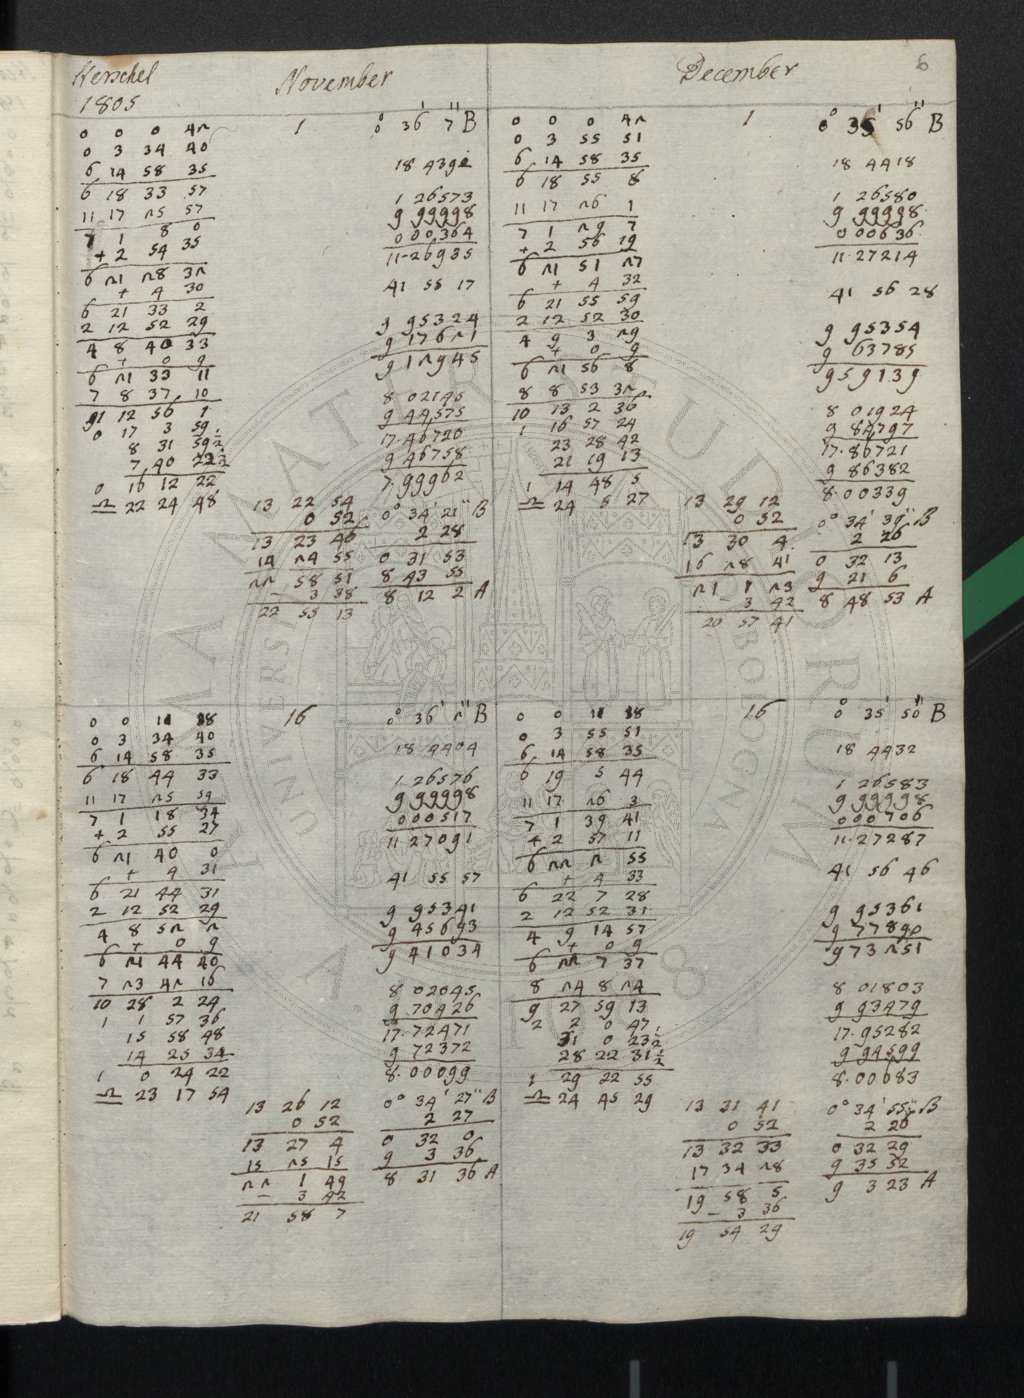 Herschel
1805
November
0 0 0 42
0 3 34 40
6 14 58 35
6 18 33 57
11 17 25 57
7 1 8 0
+ 2 54 35
6 21 28 32
+ 4 30
6 21 33 2
2 12 52 29
4 8 40 33
+ 0 9
6 21 33 11
7 8 37 10
11 12 56 1
0 17 3 59
8 31 59½
7 40 22½
0 16 12 22
♎ 22 24 48
1
13 22 54
0 52
13 23 46
14 24 55
22 58 51
– 3 38
22 55 13
0° 36' 7" B
18 4392
1 26573
9 99998
0 00364
11.26935
41 55 17
9 95324
9 17621
9 12945
8 02145
9 44575
17.46720
9 46758
7.99962
0° 34' 21" B
2 28
0 31 53
8 43 55
8 12 2 A
December
6
0 0 0 42
0 3 55 51
6 14 58 35
6 18 55 8
11 17 26 1
7 1 29 7
+ 2 56 19
6 21 51 27
+ 4 32
6 21 55 59
2 12 52 30
4 9 3 29
+ 0 9
6 21 56 8
8 8 53 32
10 13 2 36
1 16 57 24
23 28 42
21 19 13
1 14 48 5
♎ 24 5 27
1
13 29 12
0 52
13 30 4
16 28 41
21 1 23
– 3 42
20 57 41
0° 35' 56" B
18 4418
1 26580
9 99998
0 00636
11.27214
41 56 28
9 95354
9 63785
9 59139
8 01924
9 84797
17.86721
9 86382
8.00339
0° 34' 39" B
2 26
0 32 13
9 21 6
8 48 53 A
0 0 11 18
0 3 34 40
6 14 58 35
6 18 44 33
11 17 25 59
7 1 18 34
+ 2 55 27
6 21 40 0
+ 4 31
6 21 44 31
2 12 52 29
4 8 52 2
+ 0 9
6 21 44 40
7 23 42 16
10 28 2 24
1 1 57 36
15 58 48
14 25 34
1 0 24 22
♎ 23 17 54
16
13 26 12
0 52
13 27 4
15 25 15
22 1 49
– 3 42
21 58 7
0° 36' 2" B
18 4404
1 26576
9 99998
0 00517
11 27091
41 55 57
9 95341
9 45693
9 41034
8 02045
9 70426
17.72471
9 72372
8.00099
0° 34' 27" B
2 27
0 32 0
9 3 36
8 31 36 A
0 0 11 18
0 3 55 51
6 14 58 35
6 19 5 44
11 17 26 3
7 1 39 41
+ 2 57 11
6 22 2 55
+ 4 33
6 22 7 28
2 12 52 31
4 9 14 57
+ 0 9
6 22 7 37
8 24 8 24
9 27 59 13
2 2 0 47
31 0 23½
28 22 31½
1 29 22 55
♎ 24 45 29
16
13 31 41
0 52
13 32 33
17 34 28
19 58 5
– 3 36
19 54 29
0° 35' 50" B
18 4432
1 26583
9 99998
0 00706
11.27287
41 56 46
9 95361
9 77890
9 73251
8 01803
9 93479
17.95282
9 94599
8.00683
0° 34' 55" B
2 26
0 32 29
9 35 52
9 3 23 A
ALMA MATER STUDIORUM
UNIVERSITÀ DI BOLOGNA
A.D. 1088